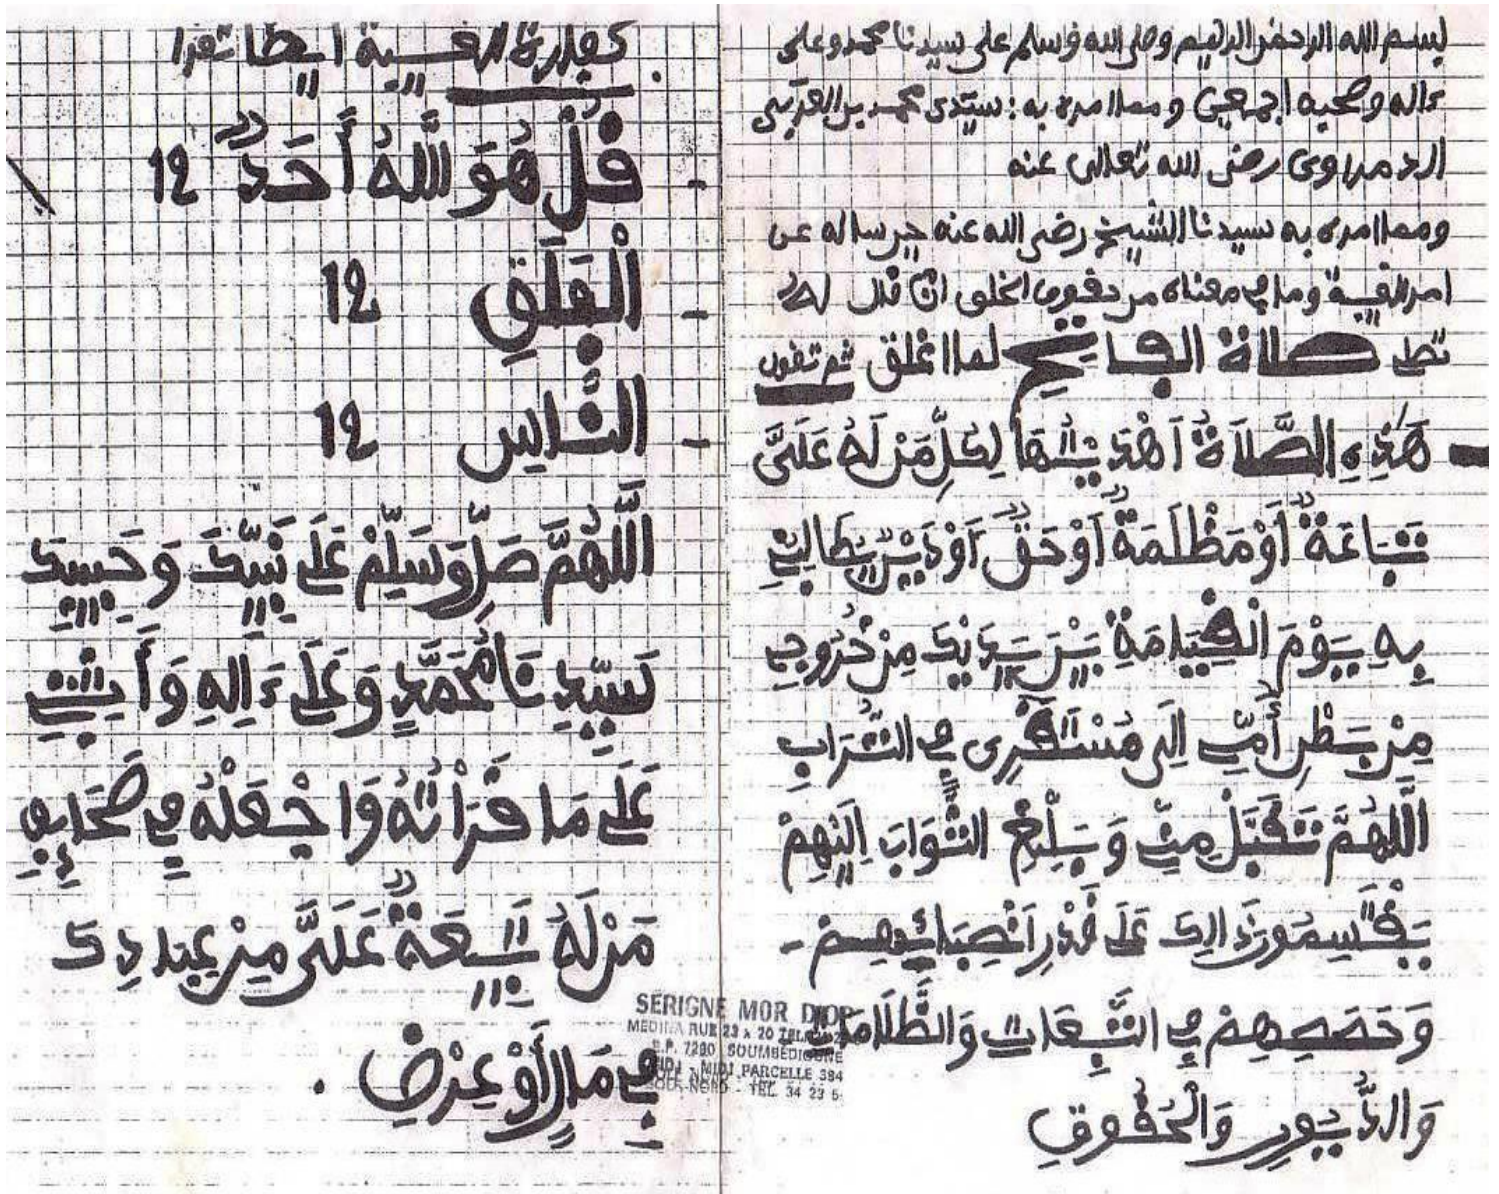 بسم الله الرحمن الرحيم وصلى الله وسلم على سيدنا محمد وعلى
ءاله وصحبه اجمعين ومما امره به: سيدى محمد بن العربي
الدمراوى رضى الله تعالى عنه
ومما امره به سيدنا الشيخ رضي الله عنه حين ساله عن
امر الغيبة وما في معناه من حقوق الخلق ان قال له
تصلى صلاة الفاتح لما اغلق ثم تقول
هَذِهِ الصَّلَاةُ أَهْدَيْتُهَا لِكُلِّ مَنْ لَهُ عَلَىَّ
تَبَاعَةٌ أَوْ مَظْلَمَةٌ أَوْ حَقٌّ أَوْ دَيْنٌ يُطَالِبُنِي
بِهِ يَوْمَ الْقِيَامَةِ بَيْنَ يَدَيْكَ مِنْ خُرُوجِي
مِنْ بَطْنِ أُمِّي إِلَى مُسْتَقَرِّى فِي التُّرَابِ
اللَّهُمَّ تَقَبَّلْ مِنِّي وَبَلِّغِ الثَّوَابَ إِلَيْهِمْ
يَقْتَسِمُونَ ذَالِكَ عَلَى قَدْرِ أَنْصِبَائِهِمْ
وَحِصَصِهِمْ فِي التَّبِعَاتِ وَالظُّلَامَاتِ
وَالدُّيُونِ وَالْحُقُوقِ
كفارة الغيبة ايضا تقرا
- قُلْ هُوَ اللَّهُ أَحَدٌ 12
- الْفَلَقِ 12
- النَّاسِ 12
اللَّهُمَّ صَلِّ وَسَلِّمْ عَلَى نَبِيِّكَ وَحَبِيبِكَ
سَيِّدِنَا مُحَمَّدٍ وَعَلَى ءَالِهِ وَأَثِبْنِي
عَلَى مَا قَرَأْتُهُ وَاجْعَلْهُ فِي صَحَائِفِ
مَنْ لَهُ تَبِعَةٌ عَلَىَّ مِنْ عِبَادِكَ
فِي مَالٍ أَوْ عِرْضٍ .
SERIGNE MOR DIOP
MEDINA RUE 23 x 20
B.P. 7280 SOUMBEDIOUNE
MIDI PARCELLE 384
TEL. 34 23 5